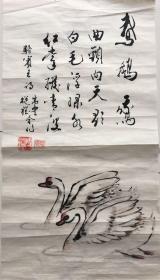 鹅鹅鹅
曲颈向天歌
白毛浮绿水
红掌拨清波
骆宾王诗